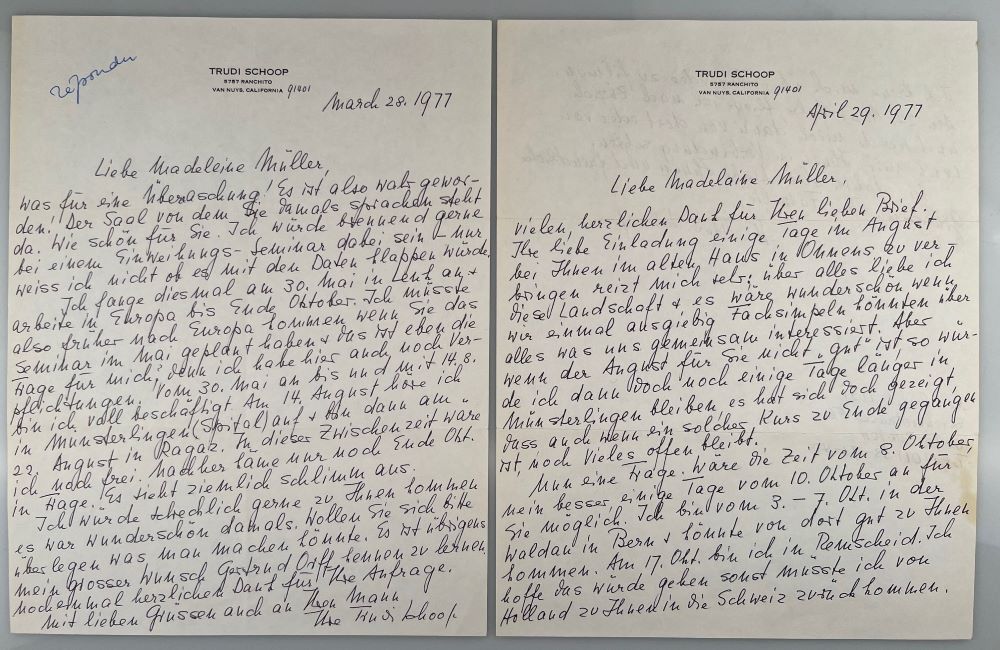 repondu
TRUDI SCHOOP
5757 RANCHITO
VAN NUYS, CALIFORNIA 91401
March 28. 1977
Liebe Madeleine Müller,
was für eine Überaschung! Es ist also wahr gewor-
den! Der Saal von dem Sie damals sprachen steht
da. Wie schön für Sie. Ich würde brennend gerne
bei einem Einweihungs-Seminar dabei sein - nur
weiss ich nicht ob es mit den Daten klappen würde.
Ich fange diesmal am 30. Mai in Lenk an, +
arbeite in Europa bis Ende Oktober. Ich müsste
also früher nach Europa kommen wenn Sie das
Seminar im Mai geplant haben + das ist eben die
Frage für mich, denn ich habe hier auch noch Ver-
pflichtungen. Vom 30. Mai an bis und mit 14.8.
bin ich voll beschäftigt. Am 14. August höre ich
in Münsterlingen (Spital) auf + bin dann am
22. August in Ragaz. In dieser Zwischenzeit wäre
ich noch frei. Nachher käme nur noch Ende Okt.
in Frage. Es sieht ziemlich schlimm aus.
Ich würde schrecklich gerne zu Ihnen kommen
es war wunderschön damals. Wollen Sie sich bitte
überlegen was man machen könnte. Es ist übrigens
mein grosser Wunsch Gertrud Orff kennen zu lernen.
nocheinmal herzlichen Dank für Ihre Anfrage.
Mit lieben Grüssen auch an Ihren Mann
Ihre Trudi Schoop.
TRUDI SCHOOP
5757 RANCHITO
VAN NUYS, CALIFORNIA 91401
April 29. 1977
Liebe Madelaine Müller,
vielen, herzlichen Dank für Ihren lieben Brief.
Ihre liebe Einladung einige Tage im August
bei Ihnen im alten Haus in Onnens zu ver-
bringen reizt mich sehr; über alles liebe ich
diese Landschaft + es wäre wunderschön wenn
wir einmal ausgiebig Fachsimpeln könnten über
alles was uns gemeinsam interessiert. Aber
wenn der August für Sie nicht "gut" ist so wür-
de ich dann doch noch einige Tage länger in
Münsterlingen bleiben, es hat sich doch gezeigt,
dass auch wenn ein solcher Kurs zu Ende gegangen
ist, noch vieles offen bleibt.
Nun eine Frage. Wäre die Zeit vom 8. Oktober,
nein besser, einige Tage vom 10. Oktober an für
Sie möglich. Ich bin vom 3. - 7. Okt. in der
Waldau in Bern + könnte von dort gut zu Ihnen
kommen. Am 17. Okt. bin ich in Remscheid. Ich
hoffe das würde gehen sonst müsste ich von
Holland zu Ihnen in die Schweiz zurück kommen.